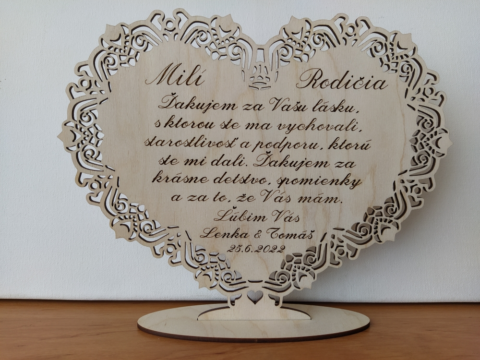 Milí Rodičia
Ďakujem za Vašu lásku,
s ktorou ste ma vychovali,
starostlivosť a podporu, ktorú
ste mi dali. Ďakujem za
krásne detstvo, spomienky
a za to, že Vás mám.
Ľúbim Vás
Lenka & Tomáš
25.6.2022